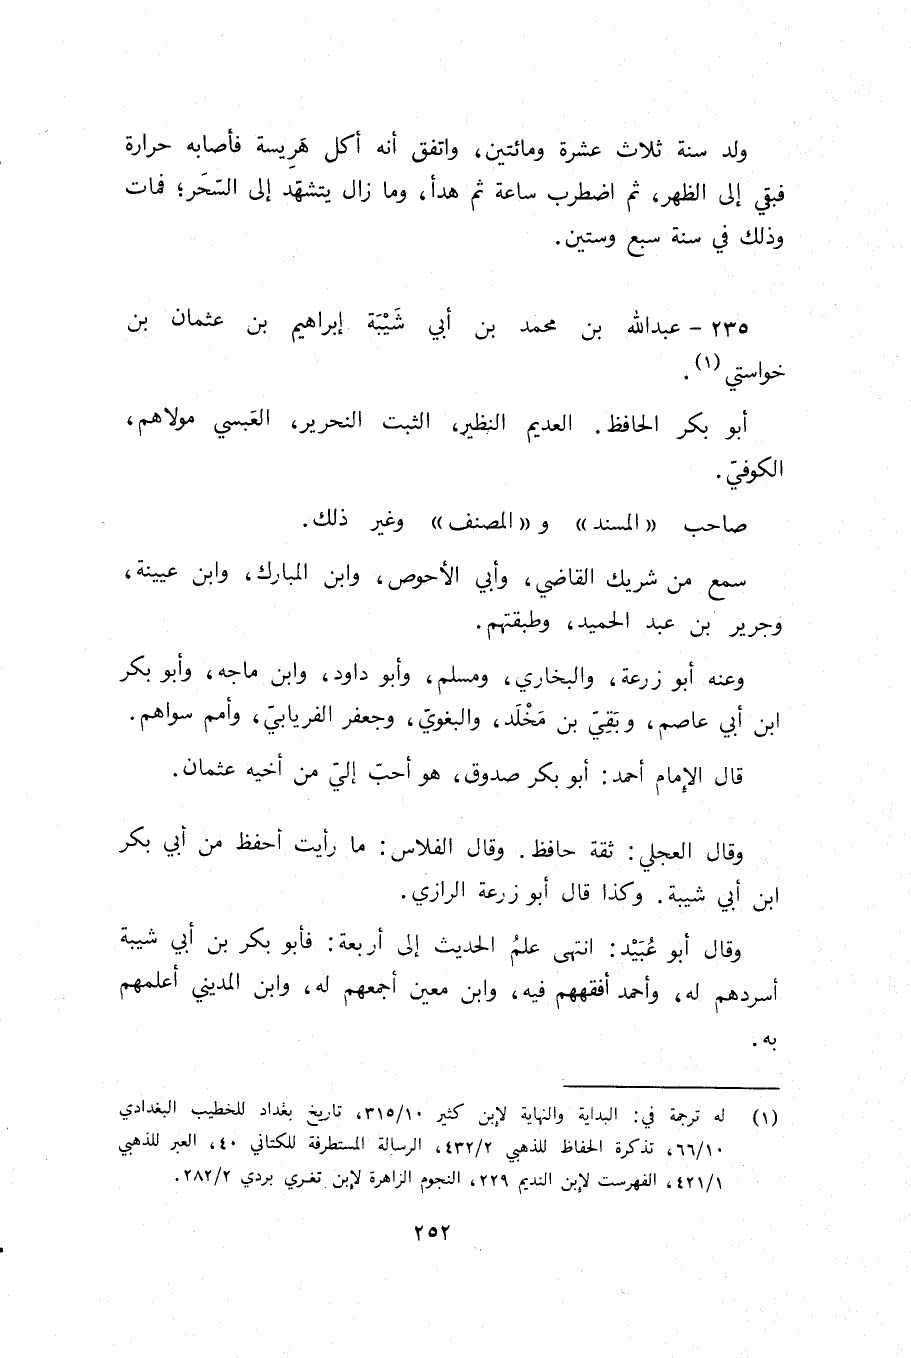 ولد سنة ثلاث عشرة ومائتين، واتفق أنه أكل هَرِيسة فأصابه حرارة
فبقي إلى الظهر، ثم اضطرب ساعة ثم هدأ، وما زال يتشهّد إلى السّحَر؛ فمات
وذلك في سنة سبع وستين.
٢٣٥ – عبدالله بن محمد بن أبي شَيْبَة إبراهيم بن عثمان بن
خواستي(١).
أبو بكر الحافظ. العديم النظير، الثبت النحرير، العَبسي مولاهم،
الكوفيّ.
صاحب «المسند» و«المصنف» وغير ذلك.
سمع من شريك القاضي، وأبي الأحوص، وابن المبارك، وابن عيينة،
وجرير بن عبد الحميد، وطبقتهم.
وعنه أبو زرعة، والبخاري، ومسلم، وأبو داود، وابن ماجه، وأبو بكر
ابن أبي عاصم، وبَقِيّ بن مَخْلَد، والبغويّ، وجعفر الفريابيّ، وأمم سواهم.
قال الإمام أحمد: أبو بكر صدوق، هو أحبّ إليّ من أخيه عثمان.
وقال العجلي: ثقة حافظ. وقال الفلاس: ما رأيت أحفظ من أبي بكر
ابن أبي شيبة. وكذا قال أبو زرعة الرازي.
وقال أبو عُبَيْد: انتهى علمُ الحديث إلى أربعة: فأبو بكر بن أبي شيبة
أسردهم له، وأحمد أفقههم فيه، وابن معين أجمعهم له، وابن المديني أعلمهم
به.
(١) له ترجمة في: البداية والنهاية لإبن كثير ٣١٥/١٠، تاريخ بغداد للخطيب البغدادي
٦٦/١٠، تذكرة الحفاظ للذهبي ٤٣٢/٢، الرسالة المستطرفة للكتاني ٤٠، العبر للذهبي
٤٢١/١، الفهرست لإبن النديم ٢٢٩، النجوم الزاهرة لإبن تغري بردي ٢٨٢/٢.
٢٥٢